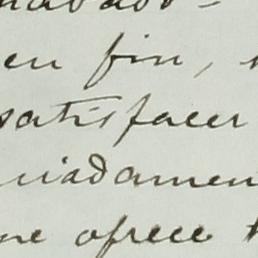 en fin,
satisfacer
iadamen
me ofrece